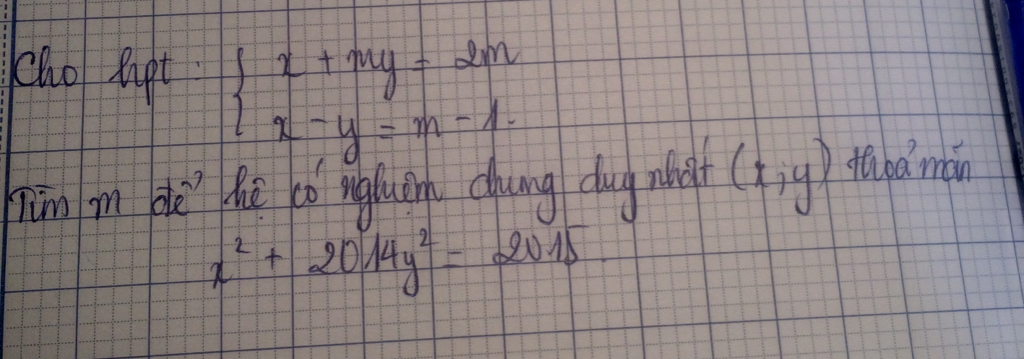 Cho hpt : { x + my = 2m
x - y = m - 1.
Tìm m để hệ có nghiệm chung duy nhất (x ; y) thoả mãn
x² + 2014y² = 2015